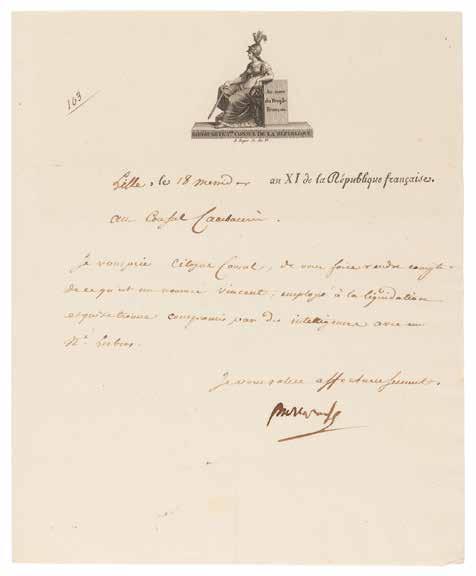 163
Au nom
du Peuple
Français
BONAPARTE 1er CONSUL DE LA RÉPUBLIQUE
Lille, le 18 messidor an XI de la République française.
au Consul Cambacérès.
Je vous prie Citoyen Consul, de vous faire rendre compte
de ce qu'est un nommé Vincent, employé à la liquidation
et qui se trouve compromis par des intelligences avec un
Mr.
Je vous salue affectueusement.